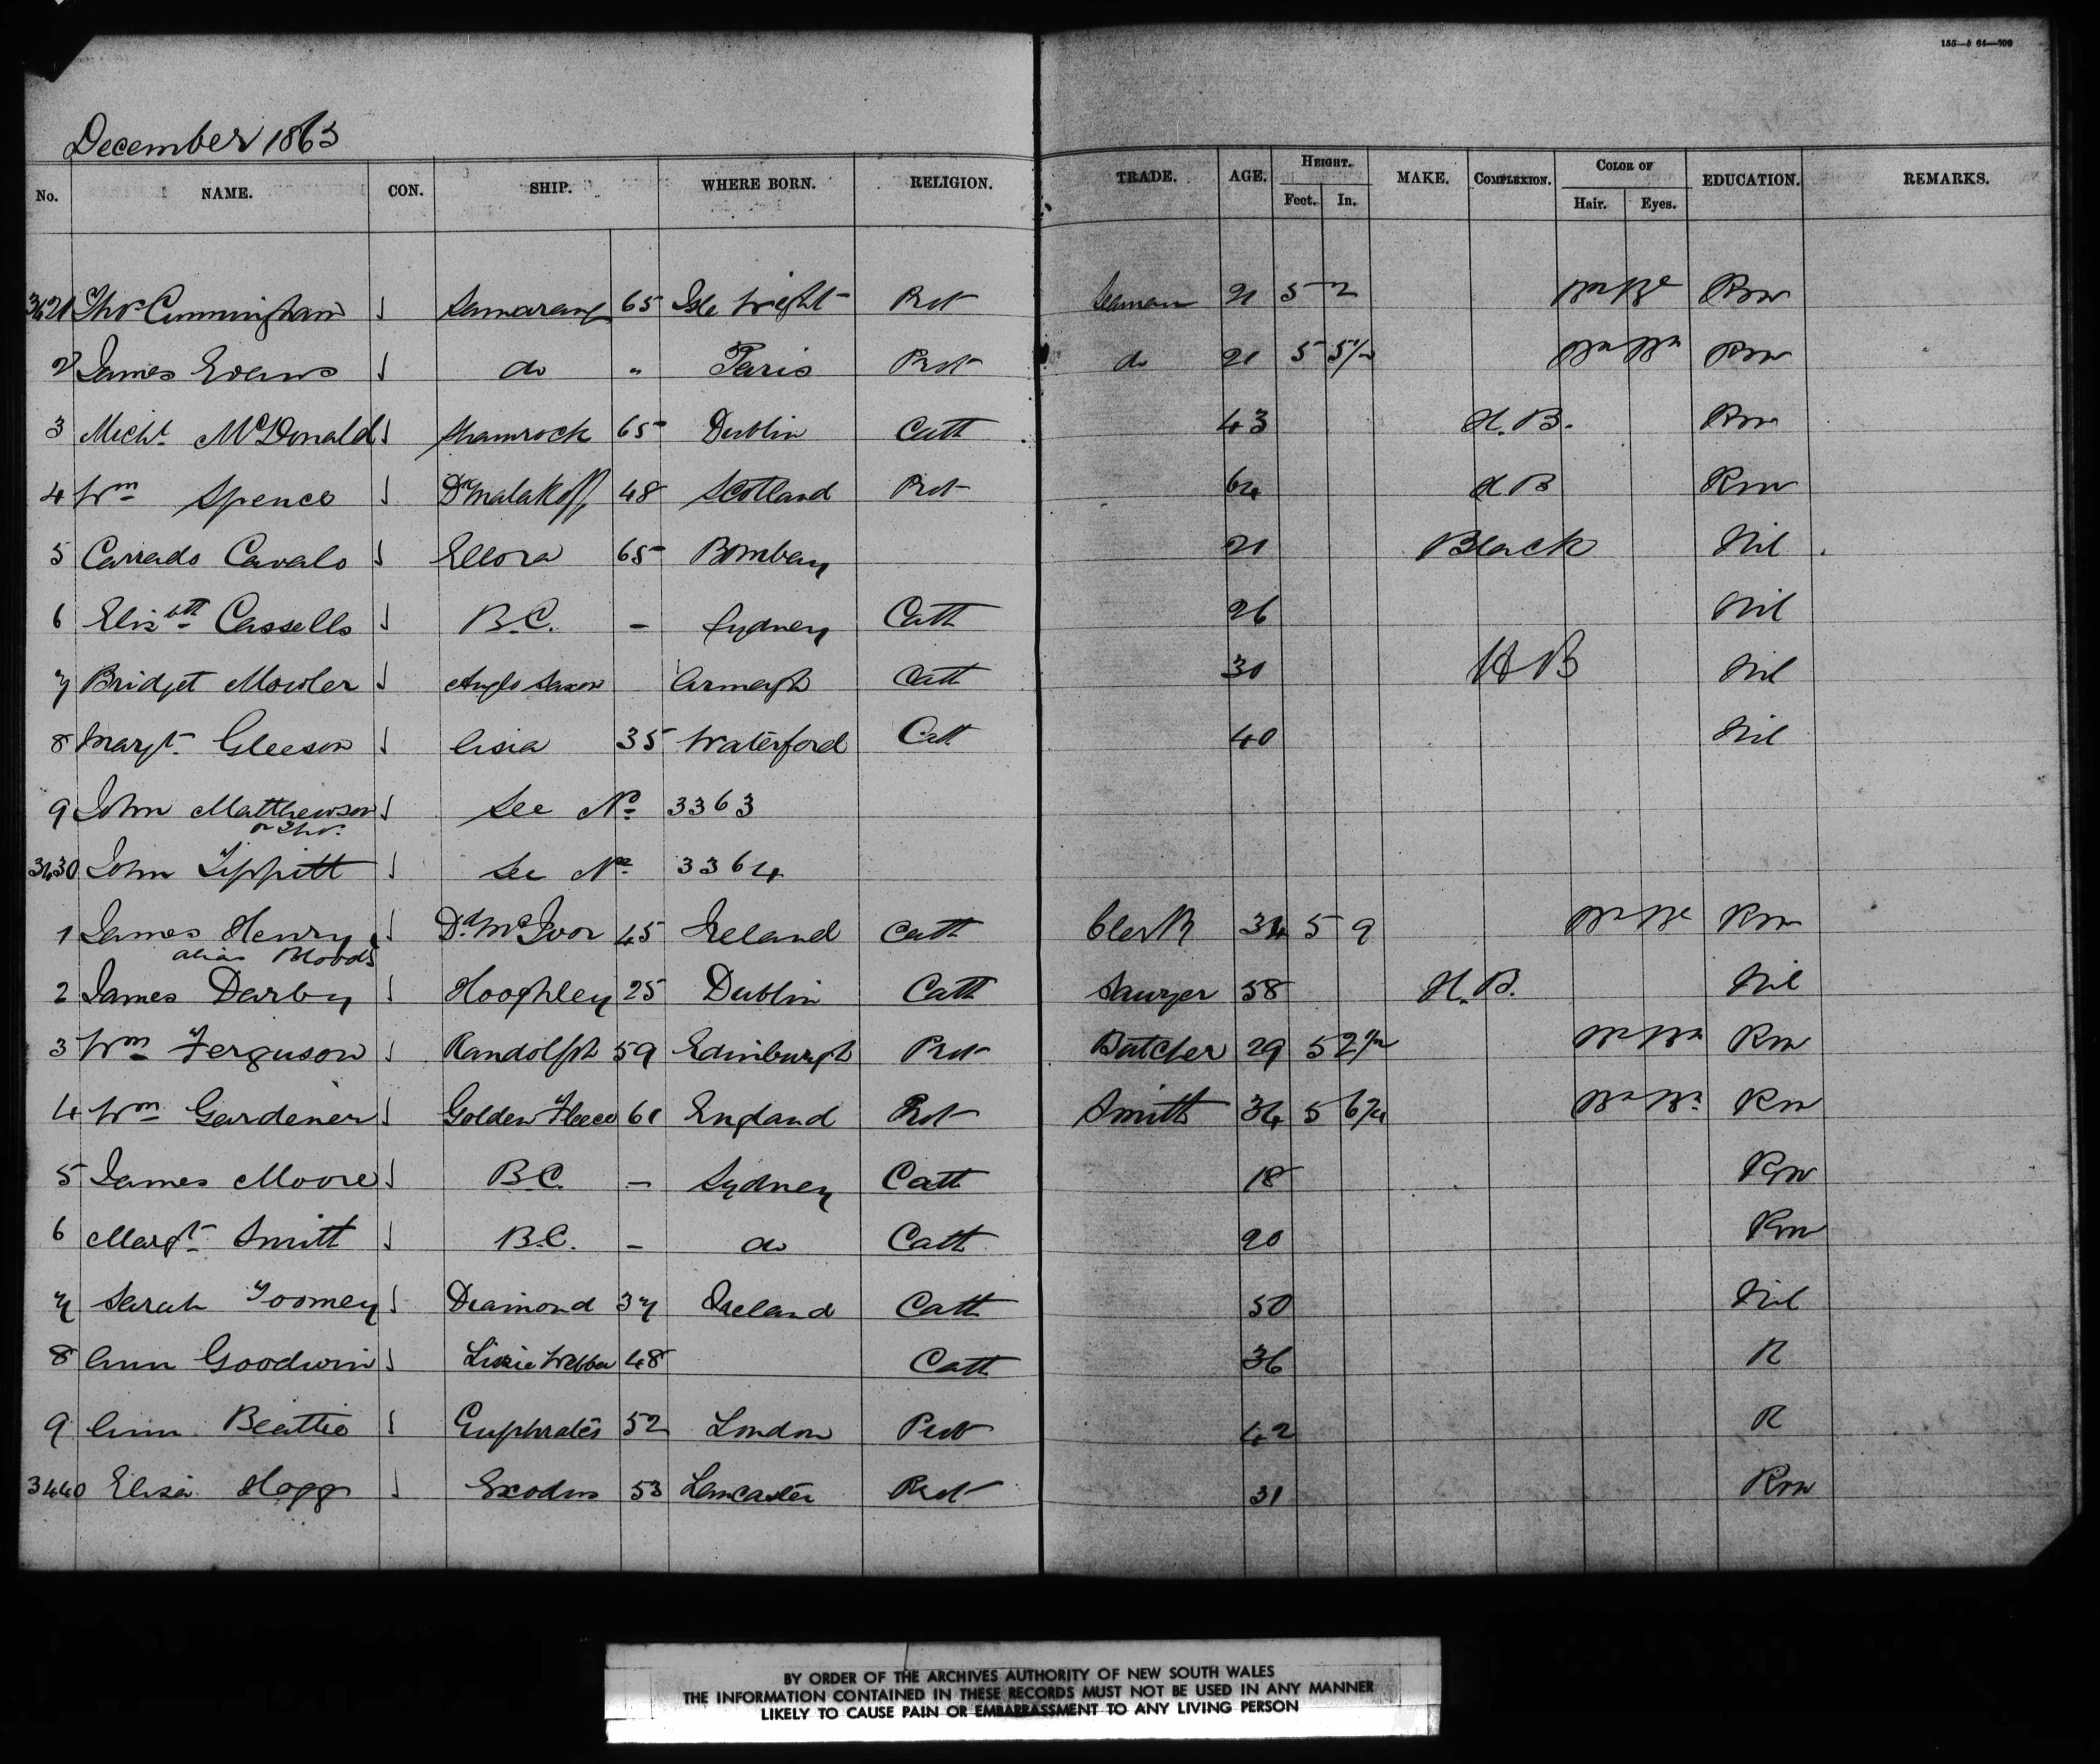 155—5 64—500
December 1865
No. NAME. CON. SHIP. WHERE BORN. RELIGION. TRADE. AGE. HEIGHT. Feet. In. MAKE. COMPLEXION. COLOR OF Hair. Eyes. EDUCATION. REMARKS.
3421 Thos Cunningham S Samarang 65 Isle Wight Prot Seaman 21 5 2 Bn Be Rw
2 James Evans S do " Paris Prot do 21 5 5½ Bn Bn Rw
3 Michl McDonald S Shamrock 65 Dublin Cath 43 H.B. Rw
4 Wm Spence S Dk Malakoff 48 Scotland Prot 64 H B Rw
5 Carrado Cavalo S Ellora 65 Bombay 21 Black Nil
6 Elizbth Cassells S B.C. – Sydney Cath 26 Nil
7 Bridget Mowler S Anglo Saxon Armagh Cath 30 H B Nil
8 Margt Gleeson S Asia 35 Waterford Cath 40 Nil
9 John Matthewson S See No 3363
or Thos.
3430 John Tippitt S See No 3364
1 James Henry S Dd McIvor 45 Ireland Cath Clerk 34 5 9 Bn Be Rw
alias Moods
2 James Darby S Hooghley 25 Dublin Cath Sawyer 58 H.B. Nil
3 Wm Ferguson S Randolph 59 Edinburgh Prot Butcher 29 5 2½ Bn Bn Rw
4 Wm Gardener S Golden Fleece 61 England Prot Smith 34 5 6¾ Bn Bn Rw
5 James Moore S B.C. – Sydney Cath 18 Rw
6 Margt Smith S B.C. – do Cath 20 Rw
7 Sarah Toomey S Diamond 37 Ireland Cath 50 Nil
8 Ann Goodwin S Lizzie Webber 48 Cath 36 R
9 Ann Beattie S Euphrates 52 London Prot 42 R
3440 Eliza Hogg S Exodus 53 Lancaster Prot 31 Rw
BY ORDER OF THE ARCHIVES AUTHORITY OF NEW SOUTH WALES
THE INFORMATION CONTAINED IN THESE RECORDS MUST NOT BE USED IN ANY MANNER
LIKELY TO CAUSE PAIN OR EMBARRASSMENT TO ANY LIVING PERSON